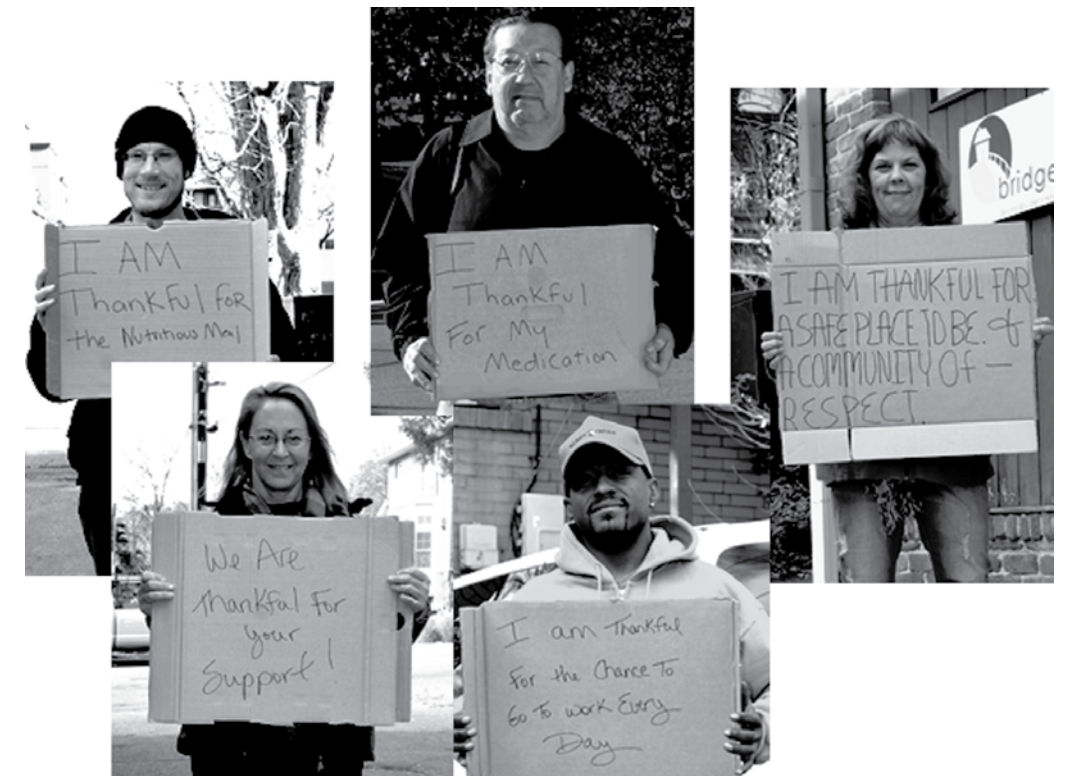 I AM
Thankful for
the Nutritious Meal
I AM
Thankful
For My
Medication
bridge
I AM THANKFUL FOR
A SAFE PLACE TO BE. &
A COMMUNITY Of —
RESPECT.
We Are
thankful For
your
Support!
I am Thankful
For the Chance To
Go To work Every
Day